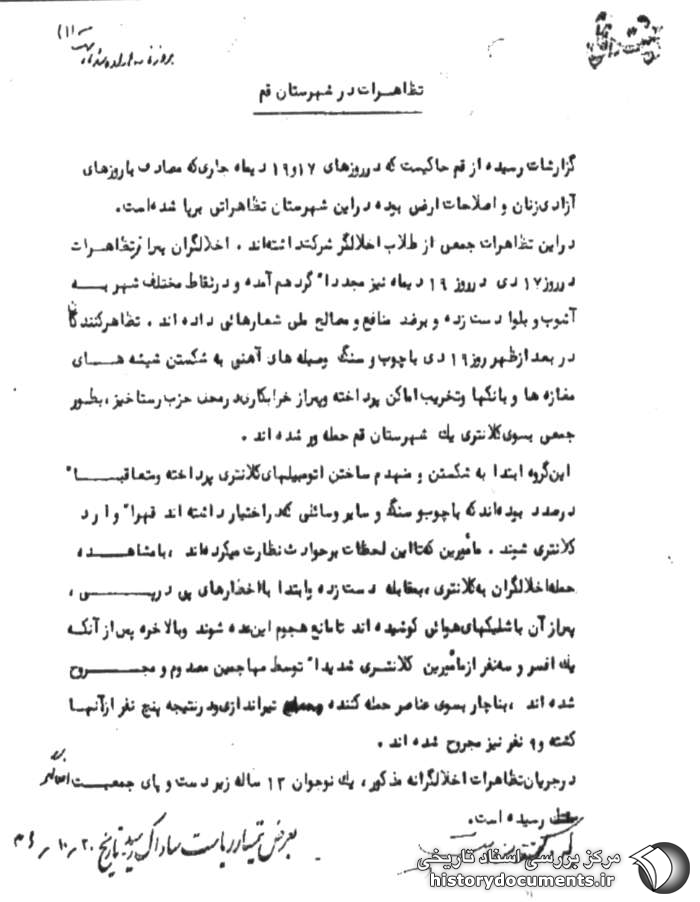 تظاهرات در شهرستان قم
گزارشات رسیده از قم حاکیست که در روزهای ۱۷ و ۱۹ دیماه جاری که مصادف با روزهای
آزادی زنان و اصلاحات ارضی بوده در این شهرستان تظاهراتی برپا شده است.
در این تظاهرات جمعی از طلاب اخلالگر شرکت داشته‌اند . اخلالگران پس از تظاهرات
در روز ۱۷ دی در روز ۱۹ دیماه نیز مجددا" گرد هم آمده و در نقاط مختلف شهر به
آشوب و بلوا دست زده و بر ضد منافع و مصالح ملی شعارهائی داده اند . تظاهرکنندگان
در بعد از ظهر روز ۱۹ دی با چوب و سنگ وسیله های آهنی به شکستن شیشه های
مغازه ها و بانکها و تخریب اماکن پرداخته و پس از خرابکاری در محل حزب رستاخیز ، بطور
جمعی بسوی کلانتری یک شهرستان قم حمله ور شده اند .
این گروه ابتدا به شکستن و منهدم ساختن اتومبیلهای کلانتری پرداخته و متعاقبا"
درصدد بوده‌اند که با چوب و سنگ و سایر وسائلی که در اختیار داشته اند قهرا" وارد
کلانتری شوند . مأمورین که تا این لحظات بر حوادث نظارت میکرده‌اند ، با مشاهده
حمله اخلالگران به کلانتری ، بمقابله دست زده و ابتدا با اخطارهای پی در پی ،
پس از آن با شلیکهای هوائی کوشیده اند تا مانع هجوم این عده شوند و بالاخره پس از آنکه
یک افسر و سه نفر از مأمورین کلانتری شدیدا" توسط مهاجمین مصدوم و مجروح
شده اند ، بناچار بسوی عناصر حمله کننده تیراندازی و در نتیجه پنج نفر از آنها
کشته و ۹ نفر نیز مجروح شده اند .
در جریان تظاهرات اخلالگرانه مذکور ، یک نوجوان ۱۳ ساله زیر دست و پای جمعیت
رسیده است.
بعرض تیمسار ریاست ساواک رسید تاریخ ۲۰ ر ۱۰ ر ۳۶
مرکز بررسی اسناد تاریخی
historydocuments.ir